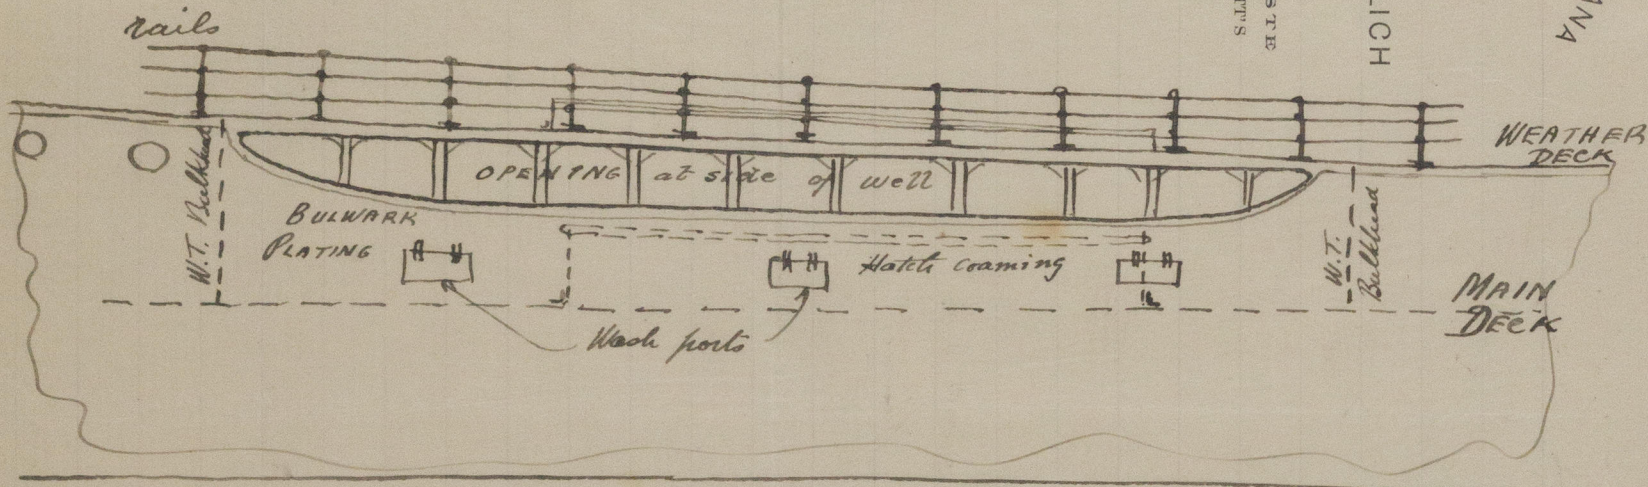 rails
LICH
STE
TTS
WEATHER
DECK
W.T. Bulkhead
OPENING at side of well
BULWARK
PLATING
Hatch coaming
W.T.
Bulkhead
MAIN
DECK
Wash ports